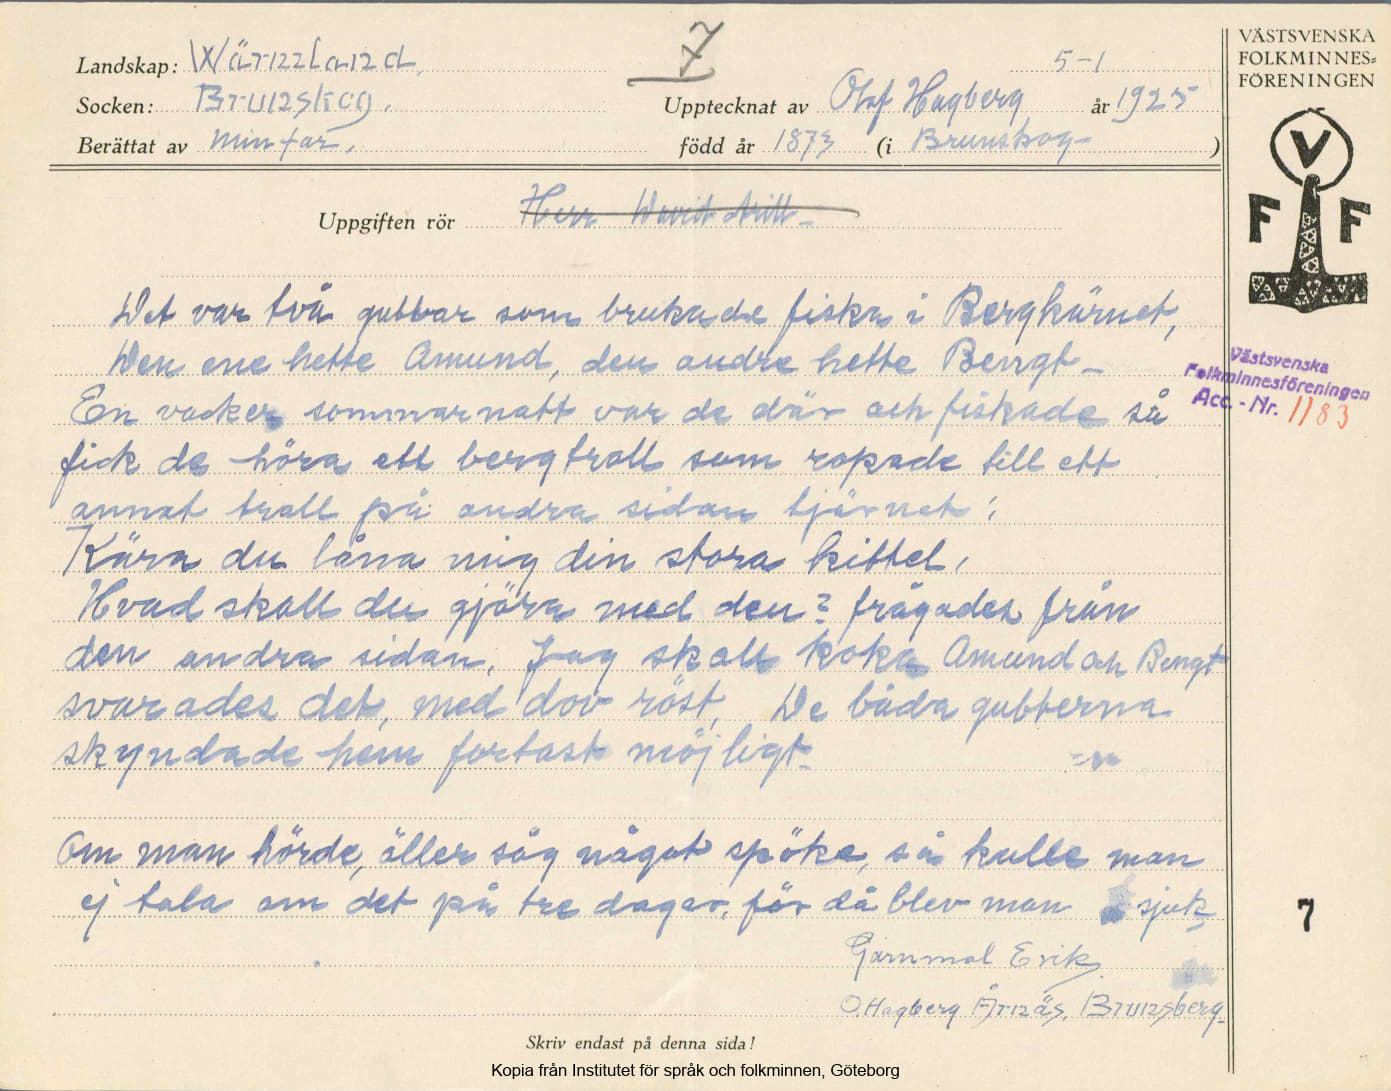 7
Landskap: Wärmland.
5-1
Socken: Brunskog.
Upptecknat av Olof Hagberg år 1925
Berättat av min far.
född år 1873 (i Brunskog )
Uppgiften rör Herr
VÄSTSVENSKA
FOLKMINNES=
FÖRENINGEN
V
F F
Det var två gubbar som brukade fiska i Bergkärnet,
Den ene hette Amund, den andre hette Bengt -
En vacker sommarnatt var de där och fiskade så
fick de höra ett bergtroll som ropade till ett
annat troll på andra sidan tjärnet:
Kära du låna mig din stora kittel,
Hvad skall du gjöra med den? frågades från
den andra sidan. Jag skall koka Amund och Bengt
svarades det, med dov röst. De båda gubberna
skyndade hem fortast möjligt.
Om man hörde, äller såg något spöke, så kulle man
ej tala om det på tre dagar, för då blev man sjuk
Erik
O. Hagberg Årnäs, Brunsberg
Västsvenska
Folkminnesföreningen
Acc. - Nr. 1183
7
Skriv endast på denna sida!
Kopia från Institutet för språk och folkminnen, Göteborg